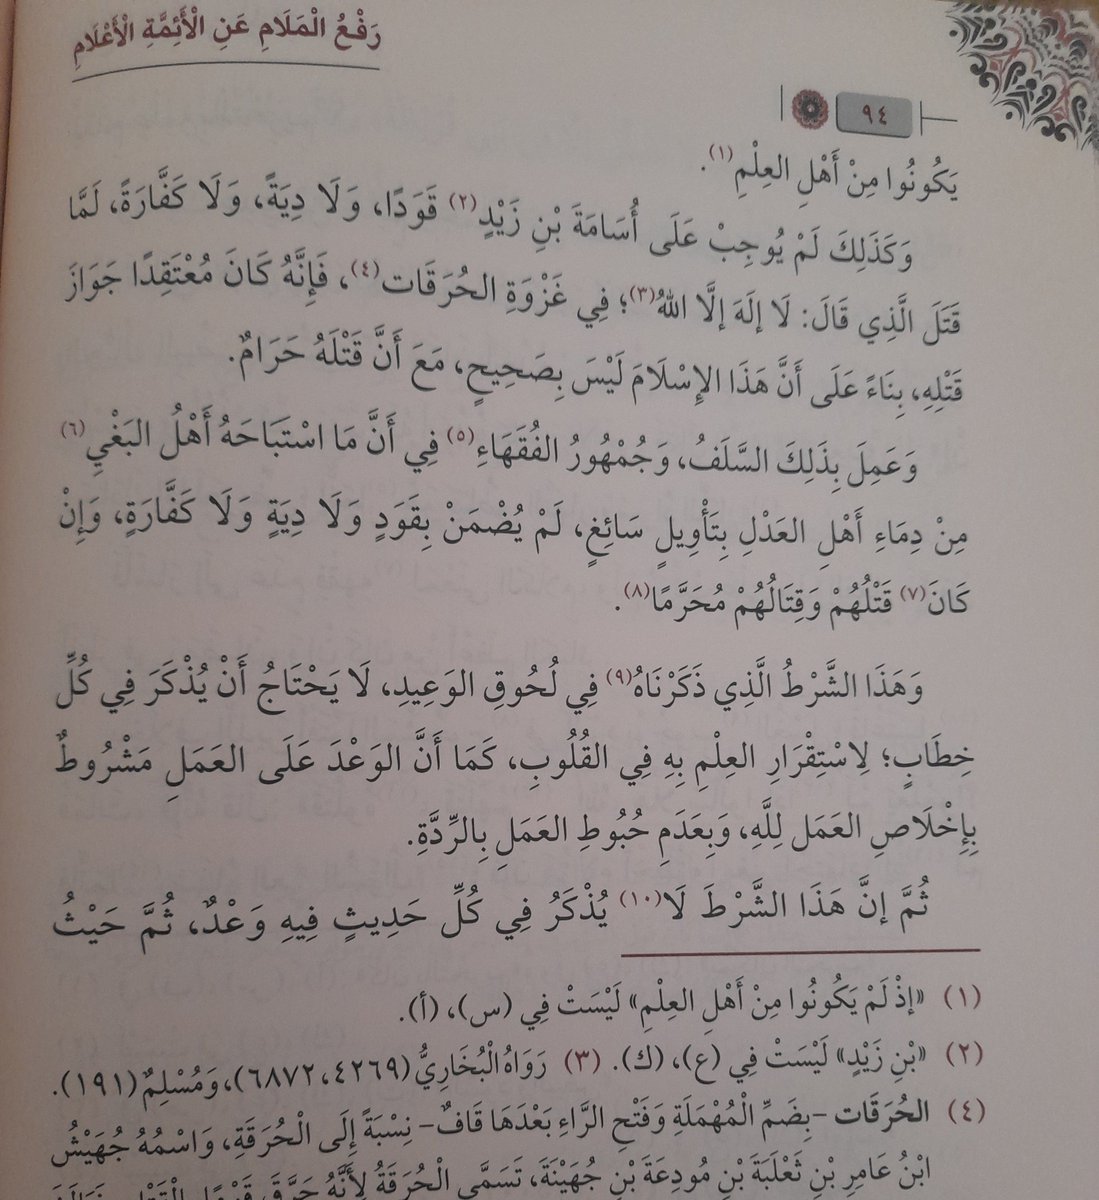 رَفْعُ الْمَلَامِ عَنِ الْأَئِمَّةِ الْأَعْلَامِ
٩٤
يَكُونُوا مِنْ أَهْلِ العِلْمِ(١).
وَكَذَلِكَ لَمْ يُوجِبْ عَلَى أُسَامَةَ بْنِ زَيْدٍ(٢) قَوَدًا، وَلَا دِيَةً، وَلَا كَفَّارَةً، لَمَّا
قَتَلَ الَّذِي قَالَ: لَا إِلَهَ إِلَّا اللهُ(٣)؛ فِي غَزْوَةِ الحُرَقَات(٤)، فَإِنَّهُ كَانَ مُعْتَقِدًا جَوَازَ
قَتْلِهِ، بِنَاءً عَلَى أَنَّ هَذَا الإِسْلَامَ لَيْسَ بِصَحِيحٍ، مَعَ أَنَّ قَتْلَهُ حَرَامٌ.
وَعَمِلَ بِذَلِكَ السَّلَفُ، وَجُمْهُورُ الفُقَهَاءِ(٥) فِي أَنَّ مَا اسْتَبَاحَهُ أَهْلُ البَغْيِ(٦)
مِنْ دِمَاءِ أَهْلِ العَدْلِ بِتَأْوِيلٍ سَائِغٍ، لَمْ يُضْمَنْ بِقَوَدٍ وَلَا دِيَةٍ وَلَا كَفَّارَةٍ، وَإِنْ
كَانَ(٧) قَتْلُهُمْ وَقِتَالُهُمْ مُحَرَّمًا(٨).
وَهَذَا الشَّرْطُ الَّذِي ذَكَرْنَاهُ(٩) فِي لُحُوقِ الوَعِيدِ، لَا يَحْتَاجُ أَنْ يُذْكَرَ فِي كُلِّ
خِطَابٍ؛ لِاسْتِقْرَارِ العِلْمِ بِهِ فِي القُلُوبِ، كَمَا أَنَّ الوَعْدَ عَلَى العَمَلِ مَشْرُوطٌ
بِإِخْلَاصِ العَمَلِ لِلَّهِ، وَبِعَدَمِ حُبُوطِ العَمَلِ بِالرِّدَّةِ.
ثُمَّ إِنَّ هَذَا الشَّرْطَ لَا(١٠) يُذْكَرُ فِي كُلِّ حَدِيثٍ فِيهِ وَعْدٌ، ثُمَّ حَيْثُ
(١) «إِذْ لَمْ يَكُونُوا مِنْ أَهْلِ العِلْمِ» لَيْسَتْ فِي (س)، (أ).
(٢) «بْنِ زَيْدٍ» لَيْسَتْ فِي (ع)، (ك). (٣) رَوَاهُ الْبُخَارِيُّ (٤٢٦٩، ٦٨٧٢)، وَمُسْلِمٌ (١٩١).
(٤) الحُرَقَات -بِضَمِّ الْمُهْمَلَةِ وَفَتْحِ الرَّاءِ بَعْدَهَا قَافٌ- نِسْبَةً إِلَى الْحُرَقَةِ، وَاسْمُهُ جُهَيْشُ
ابْنُ عَامِرِ بْنِ ثَعْلَبَةَ بْنِ مُودِعَةَ بْنِ جُهَيْنَةَ، تَسَمَّى الْحُرَقَةُ لِأَنَّهُ حَرَّقَ